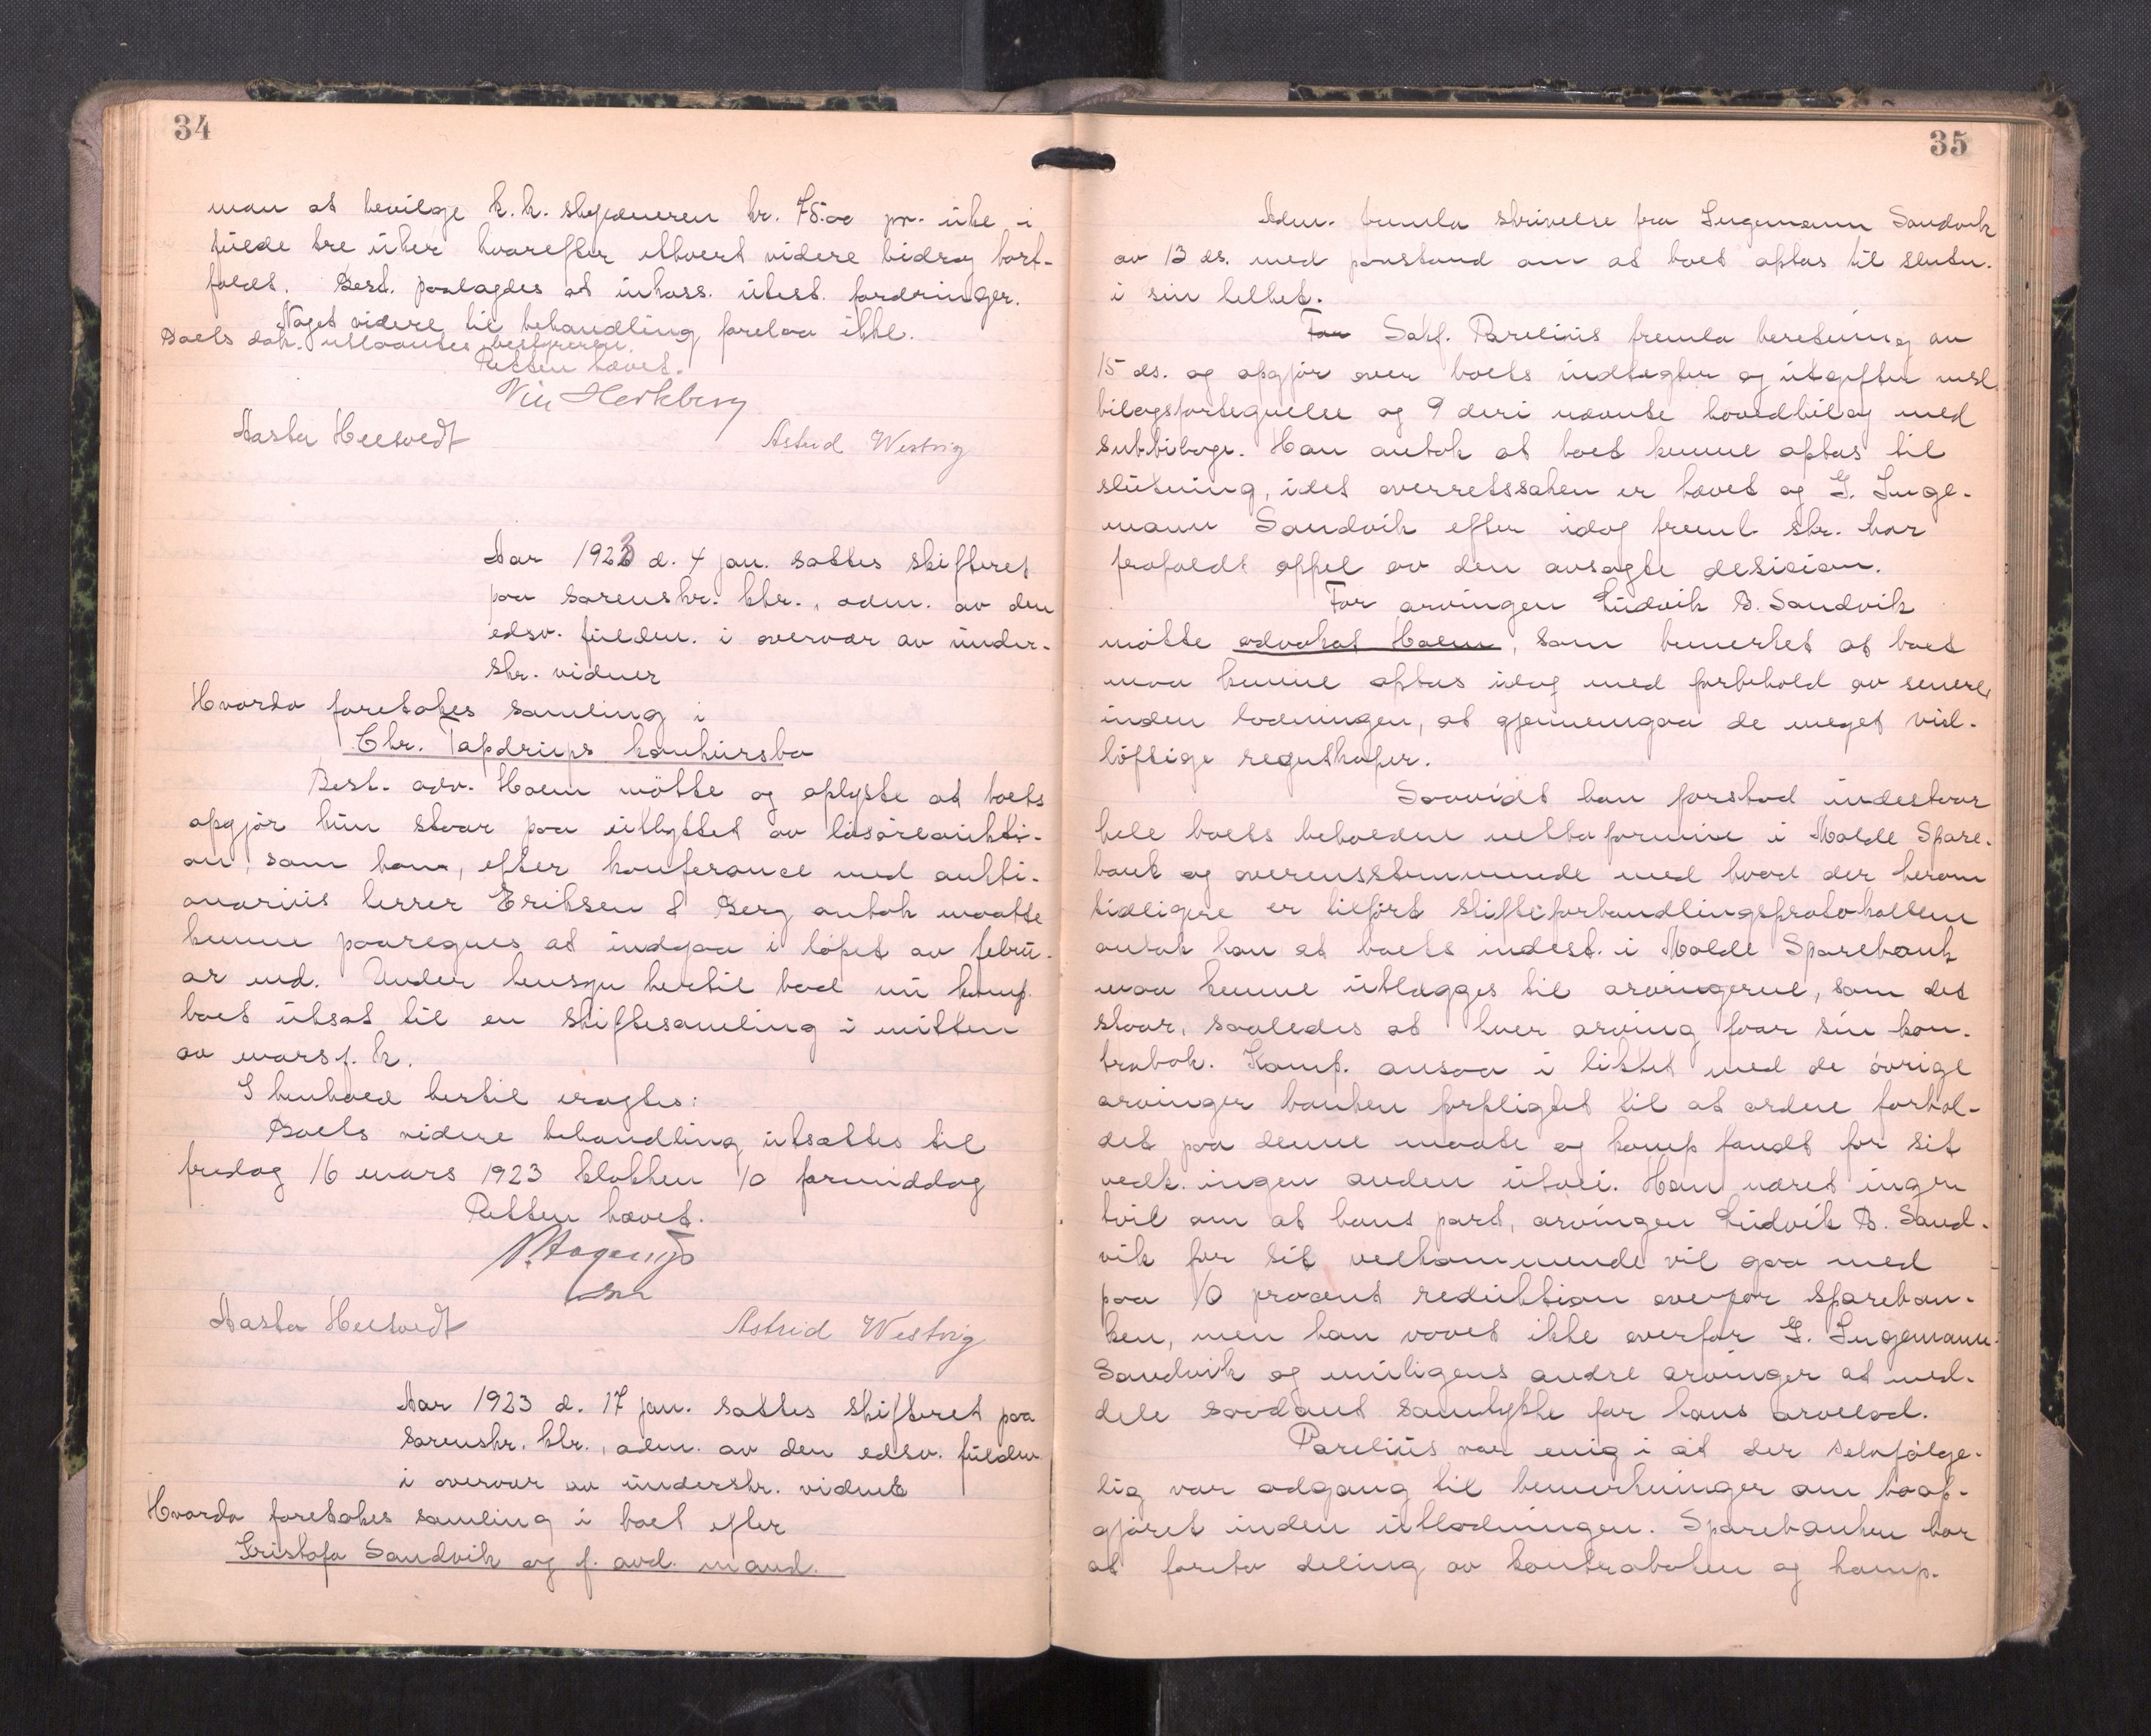 34
man at bevilge k.k. skyldneren kr. 75.00 pr. uke i
fulde tre uker hvorefter ethvert videre bidrag bort-
faldt. Best. paalagdes at inkass. utest. fordringer.
Noget videre til behandling forelaa ikke.
Boets dok. utlaantes bestyreren.
Retten hævet.
Aasta Heltvedt Astrid Westvig
Aar 1923 d. 4 jan. sattes skifteret
paa sorenskr. ktr., adm. av den
edsv. fuldm. i overvær av under-
skr. vidner
Hvorda foretokes samling i
Chr. Tapdrups konkursbo
Best. adv. Holm møtte og oplyste at boets
opgjør kun staar paa utbyttet av løsøreaukti-
on, som han, efter konferance med aukti-
onarius herrer Eriksen & Berg antok maatte
kunne paaregnes at indgaa i løpet av febru-
ar md. Under hensyn hertil bad nu komp.
boet utsat til en skiftesamling i mitten
av mars f. k.
I henhold hertil eragtes:
Boets videre behandling utsættes til
fredag 16 mars 1923 klokken 10 formiddag
Retten hævet.
Aasta Heltvedt Astrid Westvig
Aar 1923 d. 17 jan. sattes skifteret paa
sorenskr. ktr., adm. av den edsv. fuldm.
i overvær av underskr. vidner
Hvorda foretokes samling i boet efter
Kristofa Sandvik og f. avd. mand.
35
Adm. fremla skrivelse fra Ingemann Sandvik
av 13 ds. med paastand om at boet optas til slutn.
i sin helhet.
For Sakf. Parelius fremla beretning av
15 ds. og opgjør over boets indtægter og utgifter vedl.
bilagsfortegnelse og 9 deri nævnte hovedbilag med
subbilage. Han antok at boet kunne optas til
slutning, idet overretssaken er hævet og G. Inge-
mann Sandvik efter idag freml. skr. har
frafaldt appel av den avsagte desicion.
For arvingen Ludvik B. Sandvik
møtte advokat Holm, som bemerket at boet
maa kunne optas idag med forbehold av senere,
inden lodningen, at gjennemgaa de meget vid-
løftige regnskaper.
Saavidt han forstod indestaar
hele boets beholdne nettoformue i Molde Spare-
bank og overensstemmende med hvad der herom
tidligere er tilført skifteforhandlingsprotokollene
antok han at boets indest. i Molde Sparebank
maa kunne utlægges til arvingerne, som det
staar, saaledes at hver arving faar sin kon-
trabok. Komp. ansaa i likhet med de øvrige
arvinger banken forpligtet til at ordne forhol-
det paa denne maate og komp fandt for sit
vedk. ingen anden utvei. Han næret ingen
tvil om at hans part, arvingen Ludvik B. Sand-
vik for sit vedkommende vil gaa med
paa 10 procent reduktion overfor spareban-
ken, men han vovet ikke overfor G. Ingemann
Sandvik og muligens andre arvinger at med-
dele saadant samtykke for hans arvelod.
Parelius var enig i at der selvfølge-
lig var adgang til bemerkninger om boop-
gjøret inden utlodningen. Sparebanken bør
at foreta deling av kontraboken og komp.